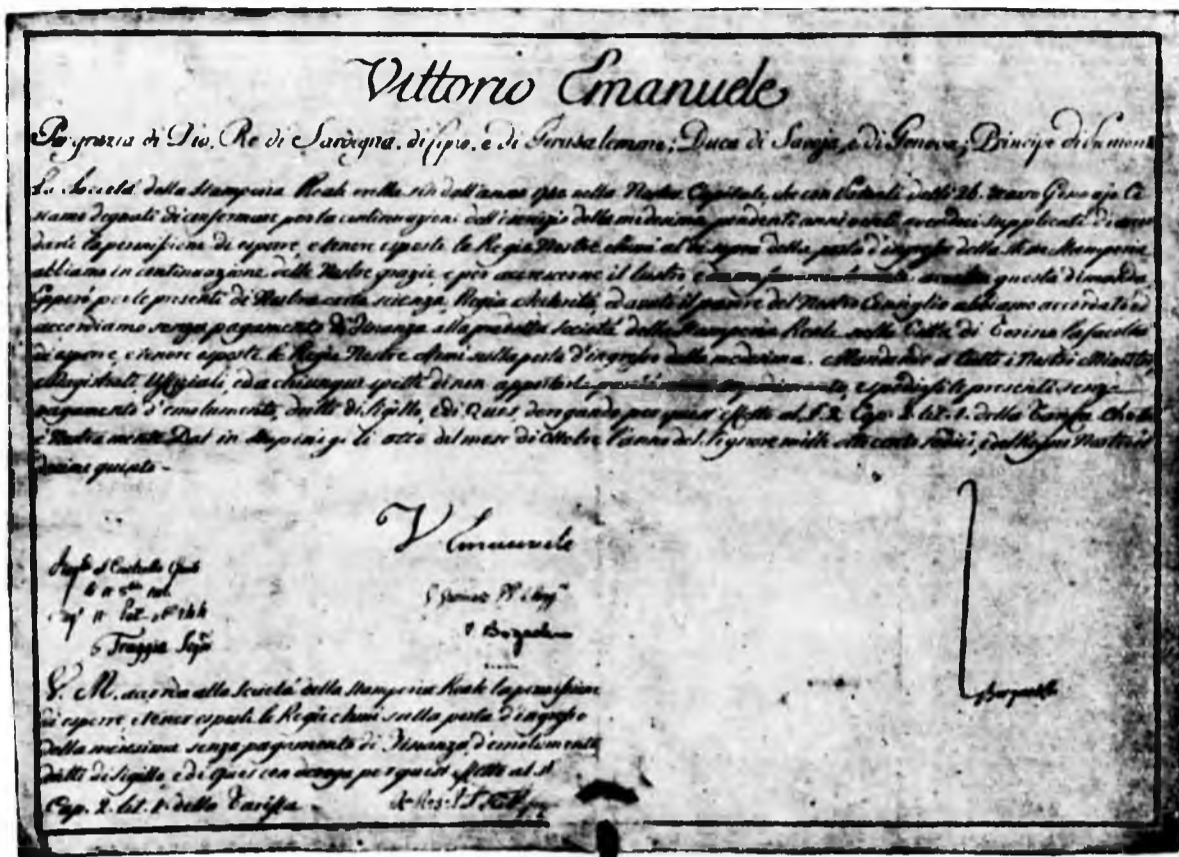 Vittorio Emanuele
Per grazia di Dio, Re di Sardegna, di Cipro, e di Gerusalemme; Duca di Savoja, e di Genova; Principe di Piemonte
La Società della Stamperia Reale eretta sin dall'anno nella Nostra Capitale, che con Patenti delli 26. Gennajo Ci
siamo degnati di confermare per la continuazione dell'esercizio della medesima pendenti anni venti, avendoci supplicati di accor
darle la permissione di esporre, e tenere esposte le Regie Nostre Armi al di sopra della porta d'ingresso della Stamperia
abbiamo in continuazione delle Nostre grazie, e per accrescerne il lustro e questa dimanda.
Epperò per le presenti di Nostra certa scienza, Regia Autorità, ed avuto il parere del Nostro Consiglio abbiamo accordato ed
accordiamo senza pagamento di finanza alla predetta Società della Stamperia Reale nella Città di Torino la facoltà
di esporre, e tenere esposte le Regie Nostre Armi sulla porta d'ingresso della medesima. Mandando a tutti i Nostri Ministri,
Magistrati, Uffiziali, ed a chiunque spetti di non e spedirsi le presenti senza
pagamento d'emolumento, dritti di sigillo, e di derogando per quest'effetto al §. 2. Cap. 2. tit. 1. della Tariffa. Chè tale
è Nostra mente. Dat. in Stupinigi li otto del mese di Ottobre l'anno del Signore mille otto cento sedici, e del Regno Nostro il
decimo quinto.
V Emanuele
al Controllo
S. M. accorda alla Società della Stamperia Reale la permissione
di esporre e tener esposte le Regie Armi sulla porta d'ingresso
della senza pagamento di Finanza, d'emolumento
dritti di sigillo, e di con deroga per quest'effetto al §.
Cap. 2. tit. 1. della Tariffa.